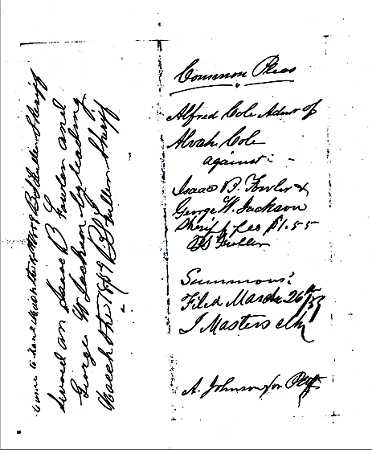 Common Pleas
Alfred Cole Admr of
Alvah Cole
against
Isaac B. Fowler &
George W. Jackson
Sheriff fees $1.55
B D Fuller
Summons
Filed March 26th
J Masters Clk
A. Johnson for Plff
Came to hand March the B D Fuller Sheriff
Served on Isaac B Fowler and
George W Jackson by reading
March the B D Fuller Sheriff